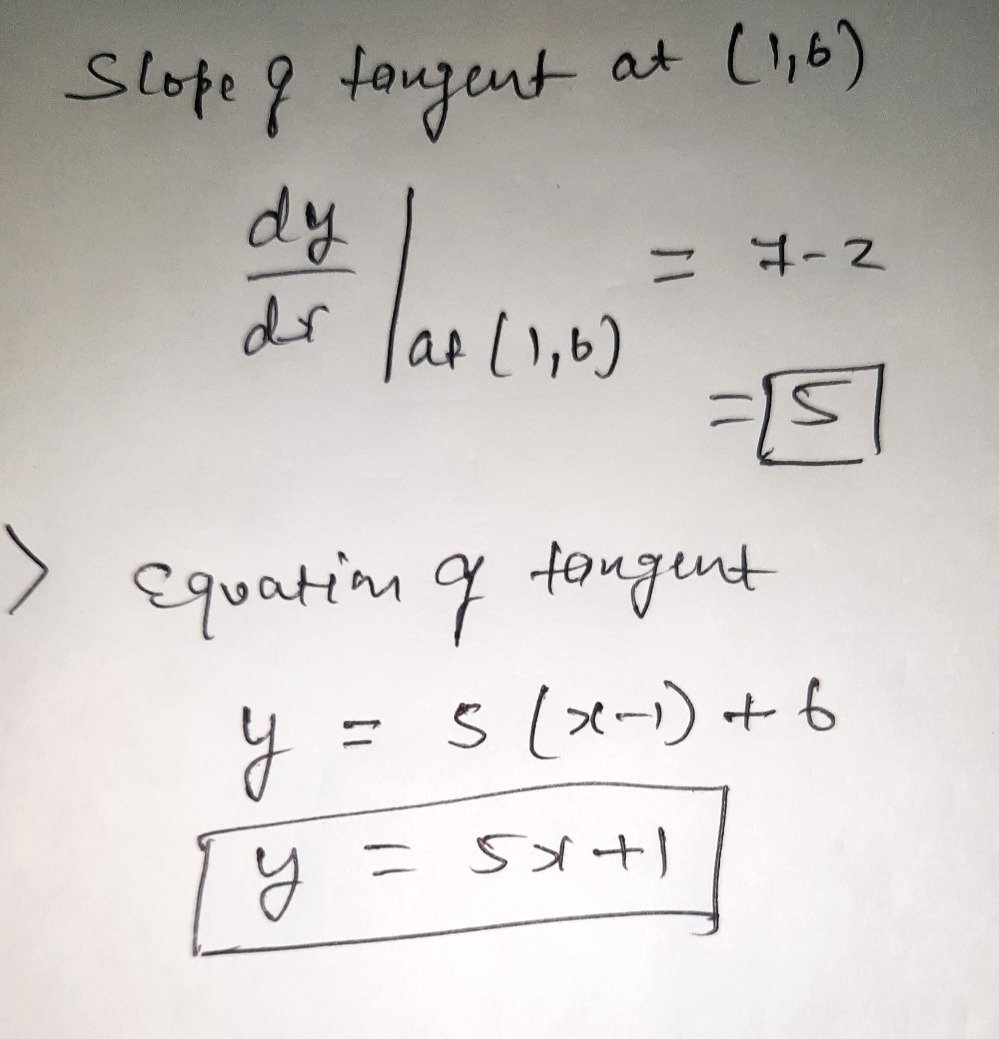 Slope of tangent at (1,6)
dy/dx | at (1,6) = 7-2
= 5
> Equation of tangent
y = 5 (x-1) + 6
y = 5x+1